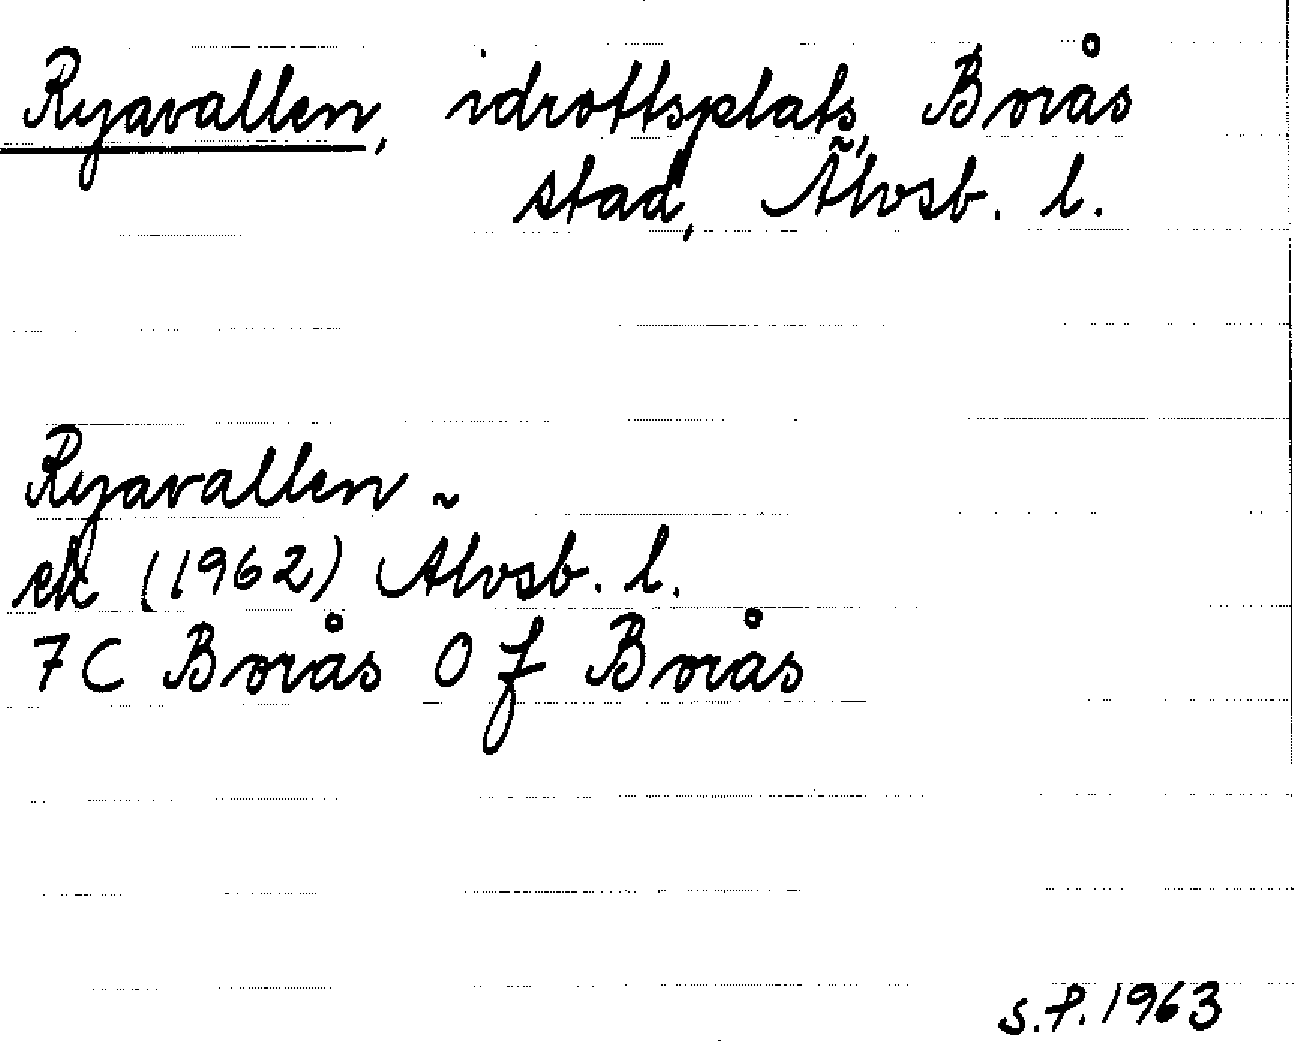 Ryavallen, idrottsplats, Borås
stad, Älvsb. l.
Ryavallen
ek (1962) Älvsb. l.
7C Borås 0 f Borås
S.P. 1963